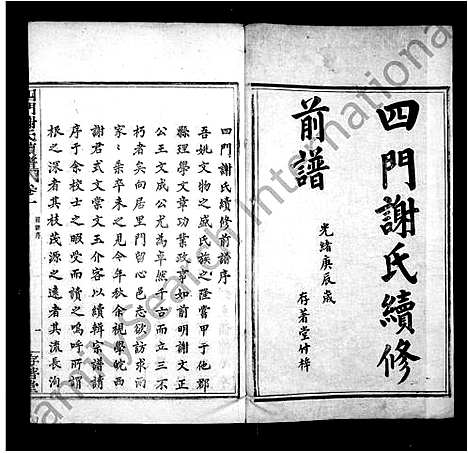 四門謝氏續修
前譜
光緒庚辰歲
存著堂付梓
四門謝氏續修前譜序
吾姚文物之盛氏族之隆嘗甲于他郡
縣理學文章功業政事如前明謝文正
公王文成公尤為卓然千古而立三不
朽者矣向居里門留心邑志欲訪求而
家家乘卒未之見今年秋余視學皖西
謝君式文棠文玉介客以續輯宗譜請
序于余校士之暇受而讀之嗚呼所謂
根之深者其枝茂源之遠者其流長洵
四門謝氏續譜 卷一
一
存著堂
FamilySearch International